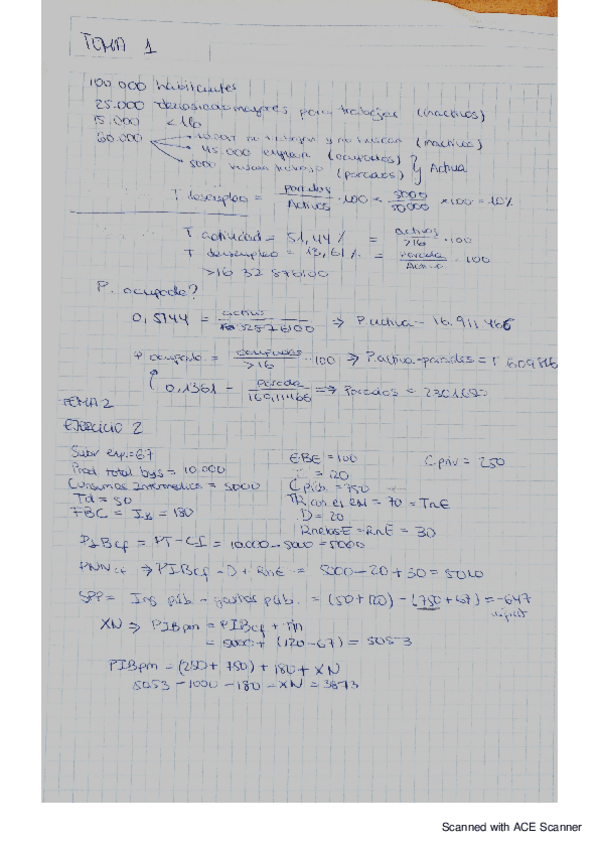 TEMA 1
100.000 habitantes
25.000 demasiado mayores para trabajar (inactivos)
15.000 < 16
60.000 no trabajan y no buscan (inactivos)
45.000 (ocupados)
5000 buscan trabajo (parados) y Activa
T desempleo = parados / Activos · 100 = 5000 / 50000 × 100 = 10%
T actividad = 51,44% = activos / >16 · 100
T desempleo = 13,61% = parados / Activos · 100
>16 32 876100
P. ocupada?
0,5144 = activos / 32876100 ⇒ P.activa = 16.911.466
P ocupada = ocupados / >16 · 100 ⇒ P.activa - parados =
0,1361 = parados / 16911466 ⇒ Parados =
TEMA 2
EJERCICIO 2
Subv exp. = 67 EBE = 100 C priv = 250
Prod total bys = 10.000 = 120
Consumos Intermedios = 5000 C púb. = 750
Td = 50 = 70 = TRnE
FBC = = 180 D = 20
= RnE = 30
PIBcf = PT - CI = 10.000 - 5000 = 5000
PNNcf ⇒ PIBcf - D + RnE = 5000 - 20 + 30 = 5010
SPP = Ing púb. - gastos púb. = (50 + 120) - (750 + 67) = -647
XN ⇒ PIBpm = PIBcf +
= 5000 + (120 - 67) = 5053
PIBpm = (250 + 750) + 180 + XN
5053 - 1000 - 180 = XN = 3873
Scanned with ACE Scanner